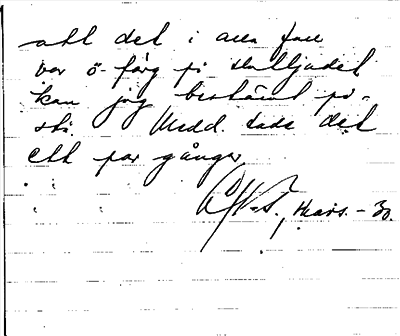 att det i alla fall
var ö-färg på skalljudet
kan jag bestämt på-
stå. Medd. sade det
ett par gånger.
Mars. - 30.